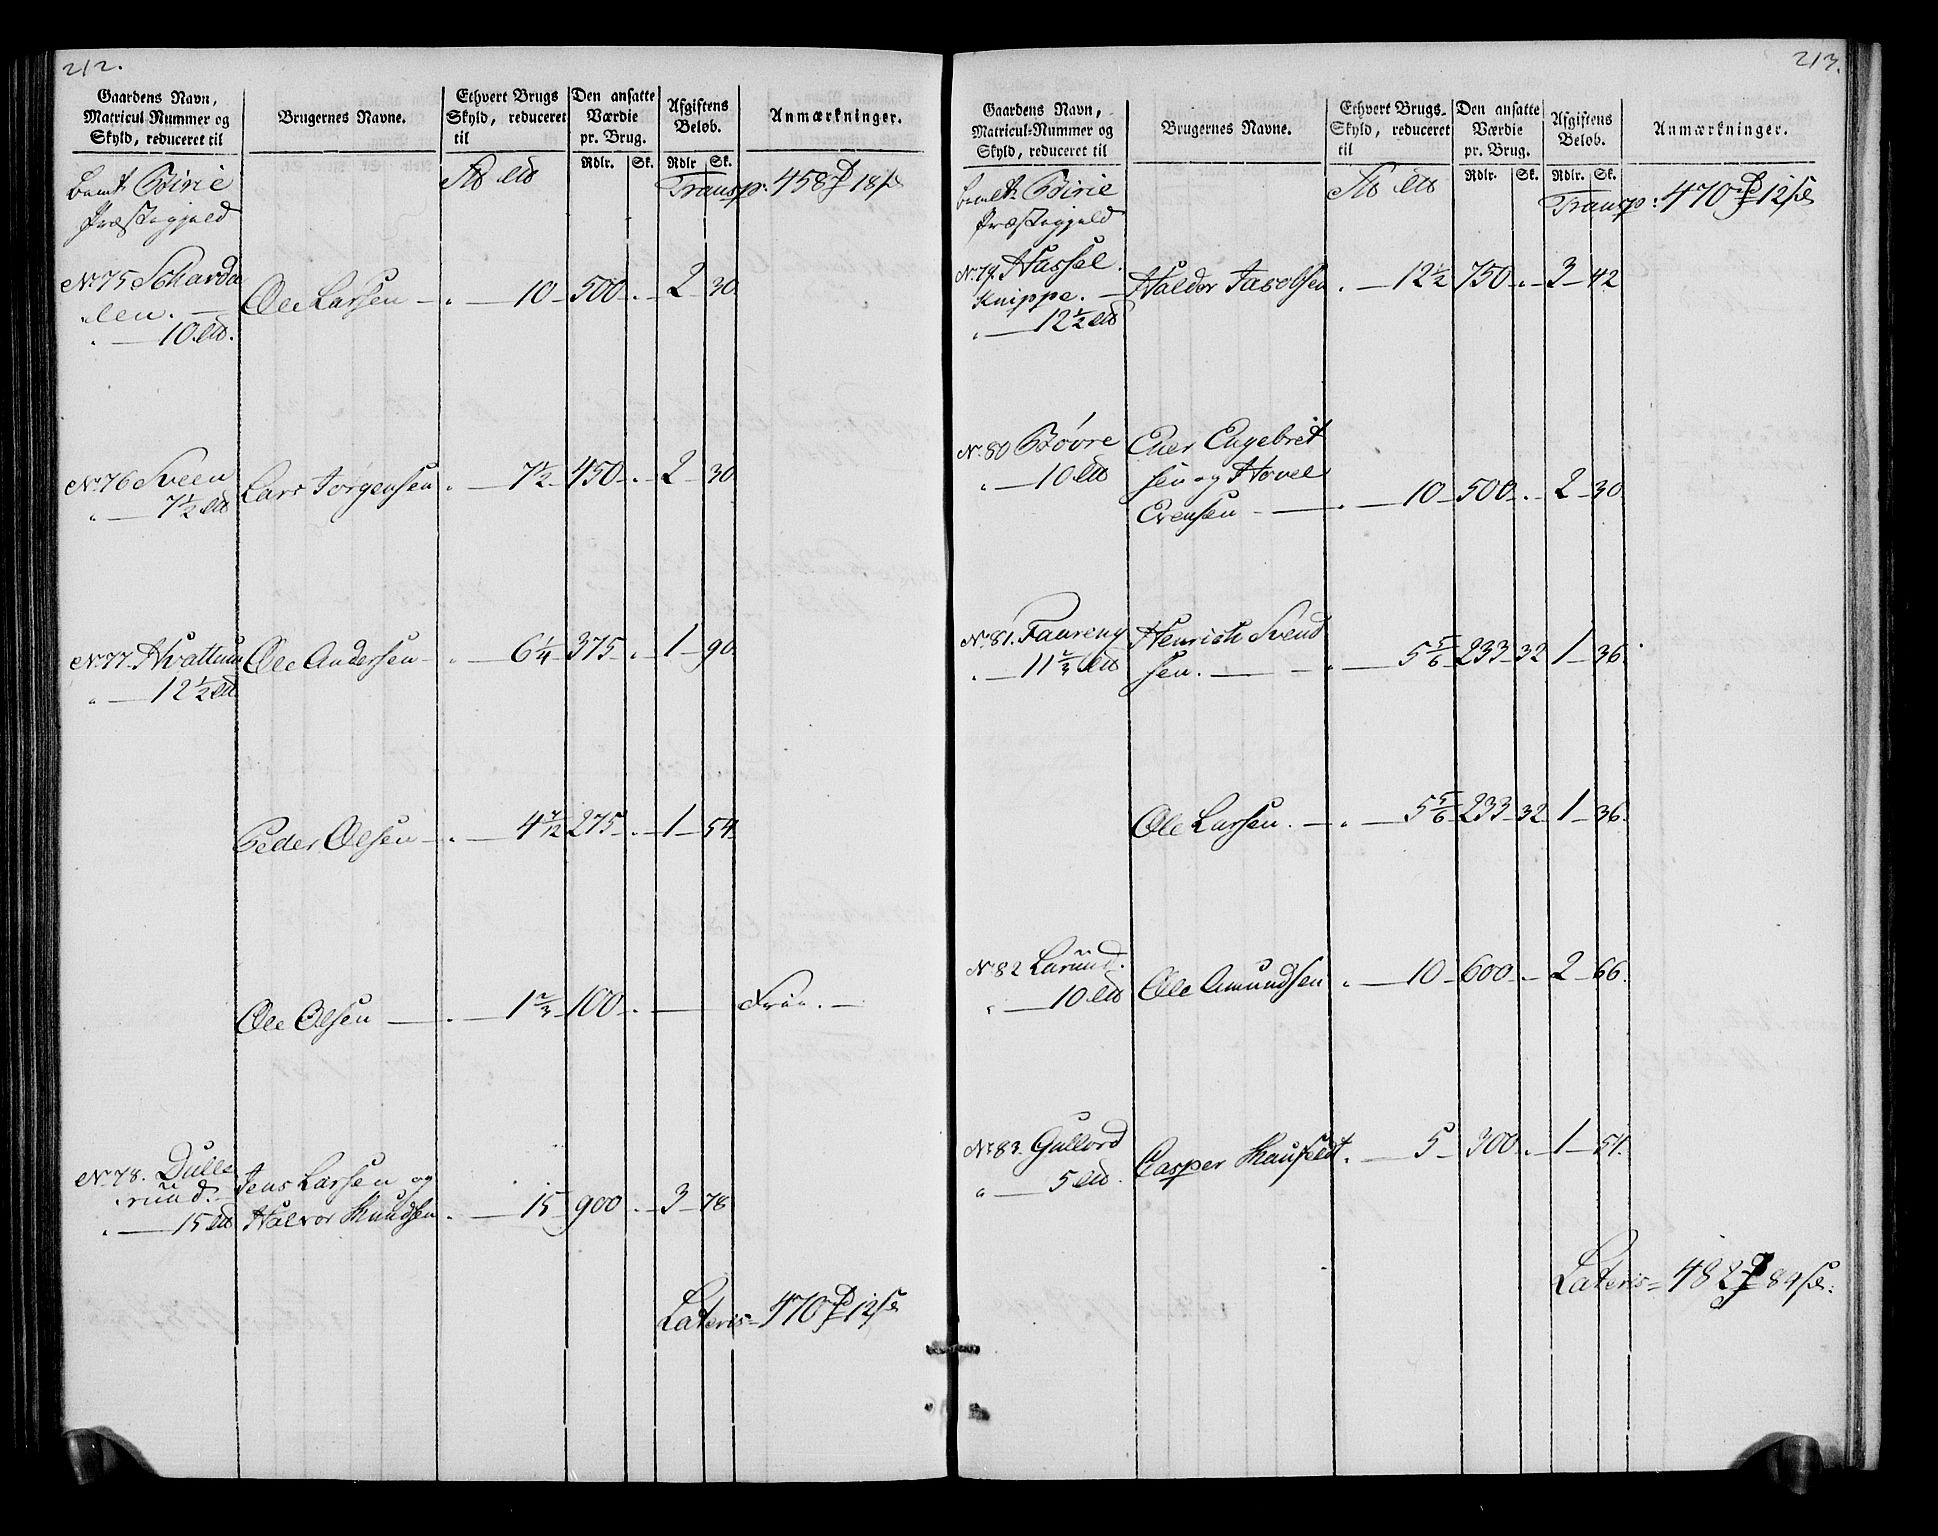 212.
Gaardens Navn, Matricul Nummer og Skyld, reduceret til | Brugernes Navne. | Ethvert Brugs Skyld, reduceret til | Den ansatte Værdie pr. Brug. Rdlr. Sk. | Afgiftens Beløb. Rdlr Sk. | Anmærkninger.
Birie
Præstegjeld
Transp: 458 18
No 75 Scharda
len. Ole Larsen — 10 — 500 — 2 — 30
10
No 76 Sveen Lars Jørgensen — 7½ — 450 — 2 — 30
7½
No 77 Hvattum Ole Andersen — 6¼ — 375 — 1 — 90
12½
Peder Olsen — 4 7/12 — 275 — 1 — 54
Ole Olsen — 1⅔ — 100 — Frie. —
No 78. Dulle Jens Larsen og
rüud. Halvor Knudsen — 15 — 900 — 3 — 78
15
Lateris = 470 12
213.
Gaardens Navn, Matricul-Nummer og Skyld, reduceret til | Brugernes Navne. | Ethvert Brugs. Skyld, reduceret til | Den ansatte Værdie pr. Brug. Rdlr. Sk. | Afgiftens Beløb. Rdlr. Sk. | Anmærkninger.
Birie
Præstegjeld
Transp: 470 12
No 79. Hassel
Knippe. Haldor Jacobsen — 12½ — 750 — 3 — 42
12½
No 80 Bøvre Ener Engebret
10 sen og Hovel
Evensen — 10 — 500 — 2 — 30
No 81. Faureng Henrich Svend
11⅔ sen. — 5⅚ — 233 — 32 — 1 — 36.
Ole Larsen. — 5⅚ — 233 — 32 — 1 — 36.
No 82 Larüud. Ole Amundsen — 10 — 600 — 2 — 66.
10
No 83. Gullord Casper — 5 — 300 — 1 — 54.
5
Lateris = 482 84